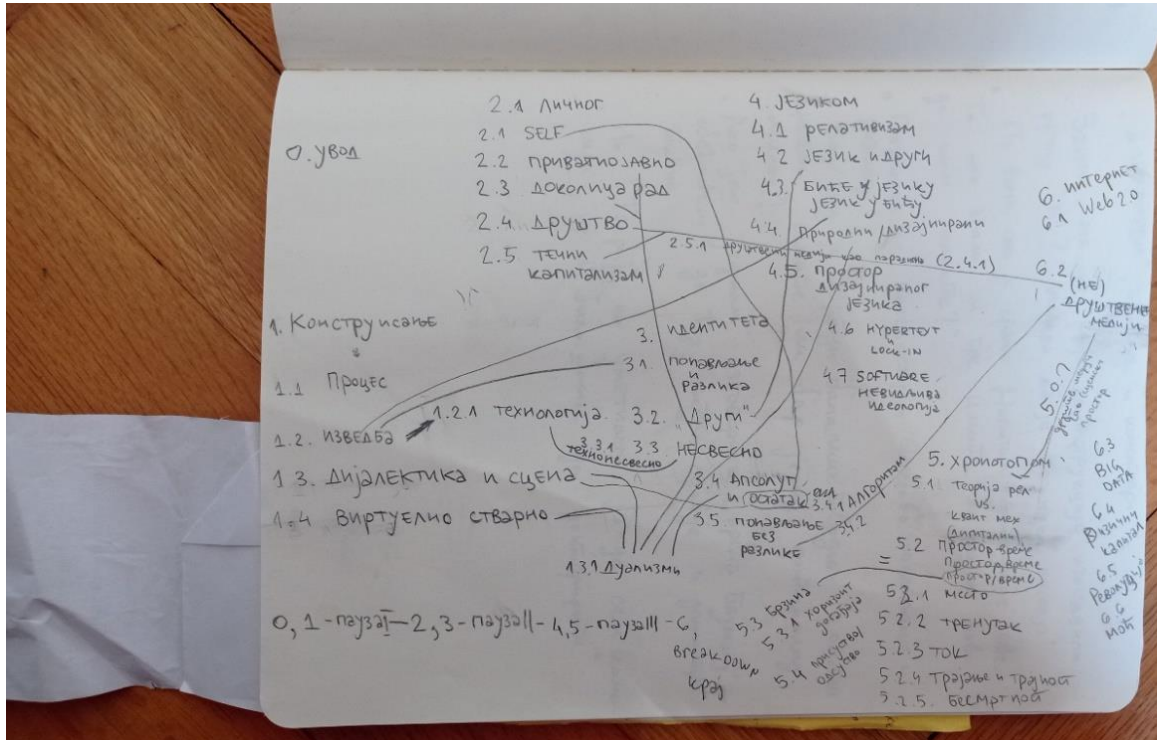 0. УВОД
1. Конструисање
1.1 Процес
1.2. ИЗВЕДБА
1.2.1 ТЕХНОЛОГИЈА
1.3. Дијалектика и сцена
1.4 Виртуелно стварно
1.3.1 Дуализми
0, 1 - паузаI - 2, 3 - паузаII - 4, 5 - паузаIII - 6,
Breakdown
крај
2.1 Личног
2.1 SELF
2.2 ПРИВАТНО ЈАВНО
2.3 ДОКОЛИЦА РАД
2.4. ДРУШТВО
2.5 ТЕЧНИ
КАПИТАЛИЗАМ
2.5.1 друштвени медији као парадигма (2.4.1)
3. ИДЕНТИТЕТА
3.1. ПОНАВЉАЊЕ
И
РАЗЛИКА
3.2. „ДРУГИ"
3.3 НЕСВЕСНО
3.3.1
техно несвесно
3.4 АПСОЛУТ
И ОСТАТАК
3.4.1 АЛГОРИТАМ
3.4.2
3.5. ПОНАВЉАЊЕ
БЕЗ
РАЗЛИКЕ
4. ЈЕЗИКОМ
4.1 РЕЛАТИВИЗАМ
4.2 ЈЕЗИК И ДРУГИ
4.3. БИЋЕ У ЈЕЗИКУ
ЈЕЗИК У БИЋУ
4.4. Природни / дизајнирани
4.5. ПРОСТОР
дизајнираног
ЈЕЗИКА
4.6 HYPERTEXT
и
LOCK-IN
4.7 SOFTWARE
НЕВИДЉИВА
ИДЕОЛОГИЈА
5.0.?
простор
5. ХРОНОТОПОМ
5.1 Теорија рел
vs.
квант мех
(дигитални)
5.2 Простор-време
Простор, време
простор/време
5.2.1 место
5.2.2 ТРЕНУТАК
5.2.3 ТОК
5.2.4 Трајање и трајност
5.2.5. БЕСМРТНОСТ
5.3 Брзина
5.3.1 хоризонт
догађаја
5.4 присуство/
одсуство
6. ИНТЕРНЕТ
6.1 Web 2.0
6.2
(НЕ)
ДРУШТВЕНИ
МЕДИЈИ
6.3
BIG
DATA
6.4
Физички
капитал
6.5
Револуција
6.6
моћ